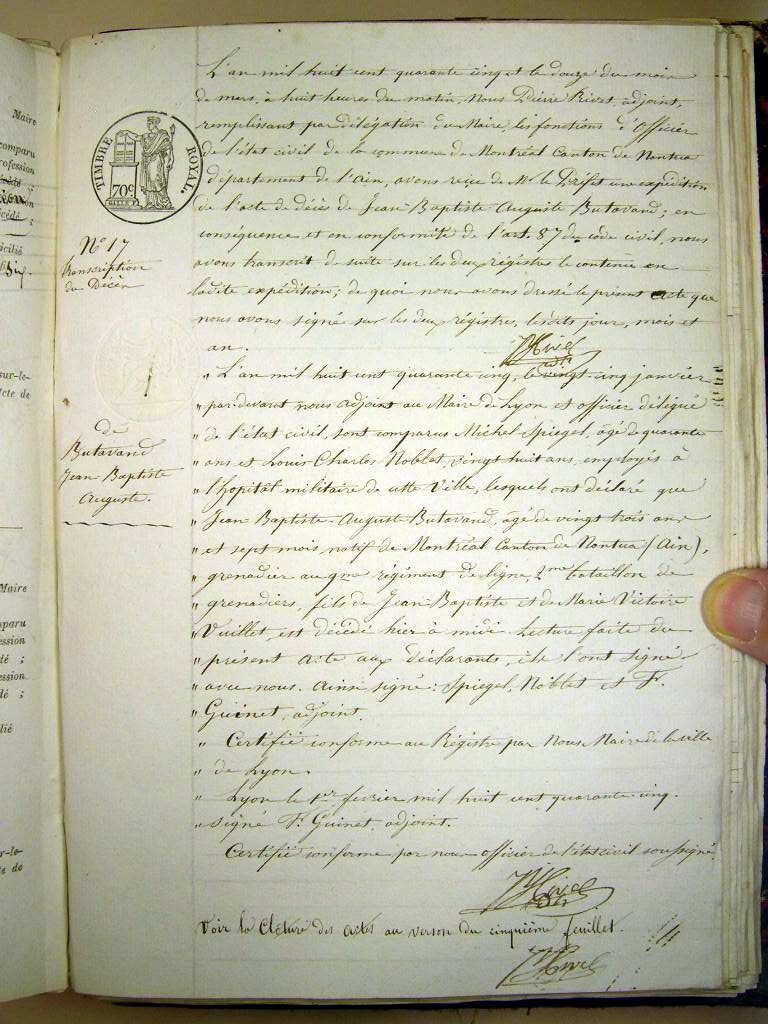 Maire
comparu
rofession
cédé ;
icilié
sur-le-
cte de
Maire
mparu
ession
dé ;
ession
lé ;
lié
r-le-
e de
TIMBRE ROYAL.
70c.
N° 17
transcription
du Décès
de
Butavand
Jean Baptiste
Auguste.
L'an mil huit cent quarante cinq et le douze du mois
de mars, à huit heures du matin, Nous Pierre Rivet, adjoint,
remplissant par délégation du Maire, les fonctions d'Officier
de l'état civil de la commune de Montréal Canton de Nantua
département de l'Ain, avons reçu de Mr. le Préfet une expédition
de l'acte de décès de Jean-Baptiste Auguste Butavand; en
conséquence et en conformité de l'art. 87 du code civil, nous
avons transcrit de suite sur les deux régistres le contenu en
ladite expédition; de quoi nous avons dressé le présent acte que
nous avons signé sur les deux régistres, lesdits jour, mois et
an.
" L'an mil huit cent quarante cinq, le vingt-cinq janvier
" par-devant nous adjoint au Maire de Lyon et officier délégué
" de l'état civil, sont comparus Michel Spiegel, âgé de quarante
" ans et Louis Charles Noblet, vingt huit ans, employés à
" l'hopital militaire de cette Ville, lesquels ont déclaré que
" Jean-Baptiste-Auguste Butavand, âgé de vingt trois ans
" et sept mois natif de Montréal Canton de Nantua (Ain),
" grenadier au 9me régiment de ligne, 2me bataillon de
" grenadiers, fils de Jean-Baptiste et de Marie Victoire
" Vuillet, est décédé hier à midi. Lecture faite du
" présent acte aux déclarants, ils l'ont signé
" avec nous. Ainsi signé: Spiegel, Noblet et F.
" Guinet, adjoint.
" Certifié conforme au Régistre par Nous Maire de la ville
" de Lyon.
" Lyon le 1er. fevrier mil huit cent quarante cinq.
" signé F. Guinet adjoint.
Certifié conforme par nous officier de l'état civil soussigné.
Voir la Clôture des actes au verson du cinquième feuillet.